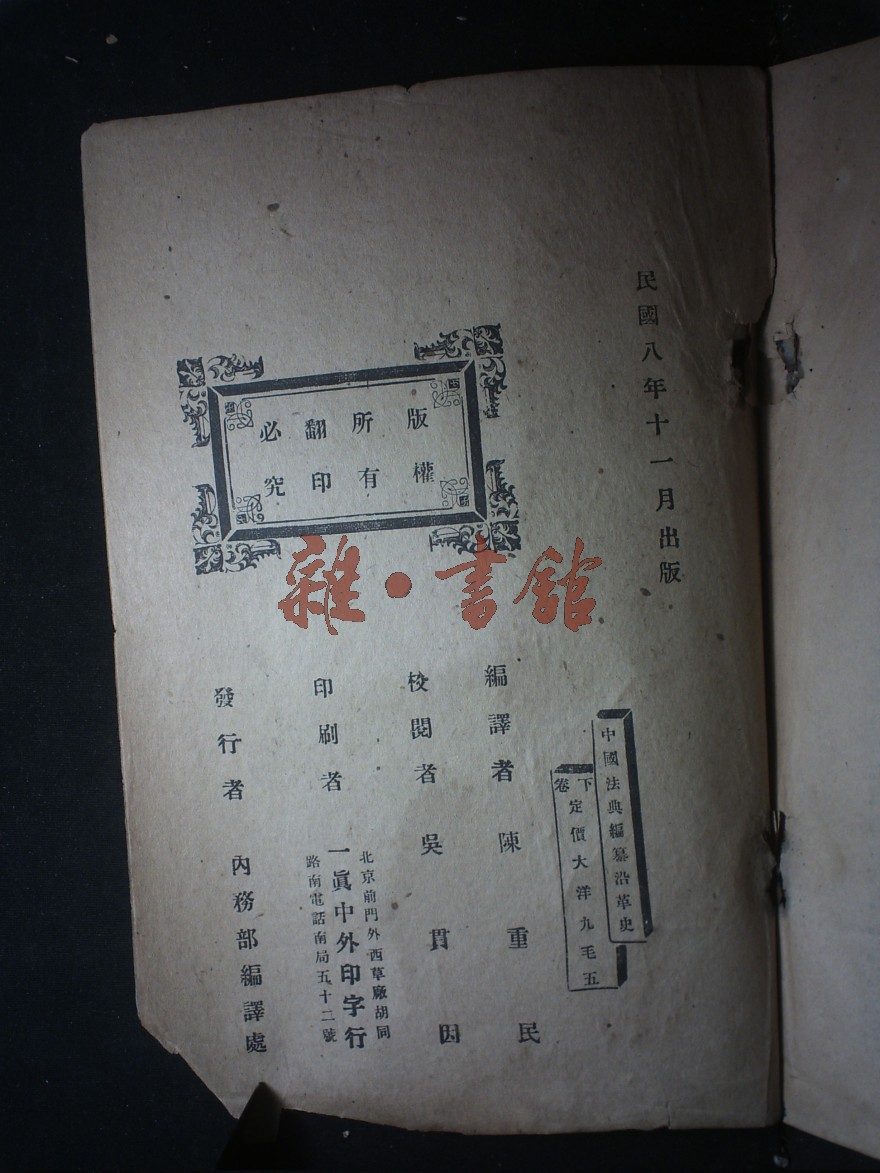 民國八年十一月出版
中國法典編纂沿革史
下卷定價大洋九毛五
版權
所有
翻印
必究
編譯者 陳重民
校閱者 吳貫因
印刷者
北京前門外西草廠胡同
一眞中外印字行
路南電話南局五十二號
發行者 內務部編譯處
雜·書館